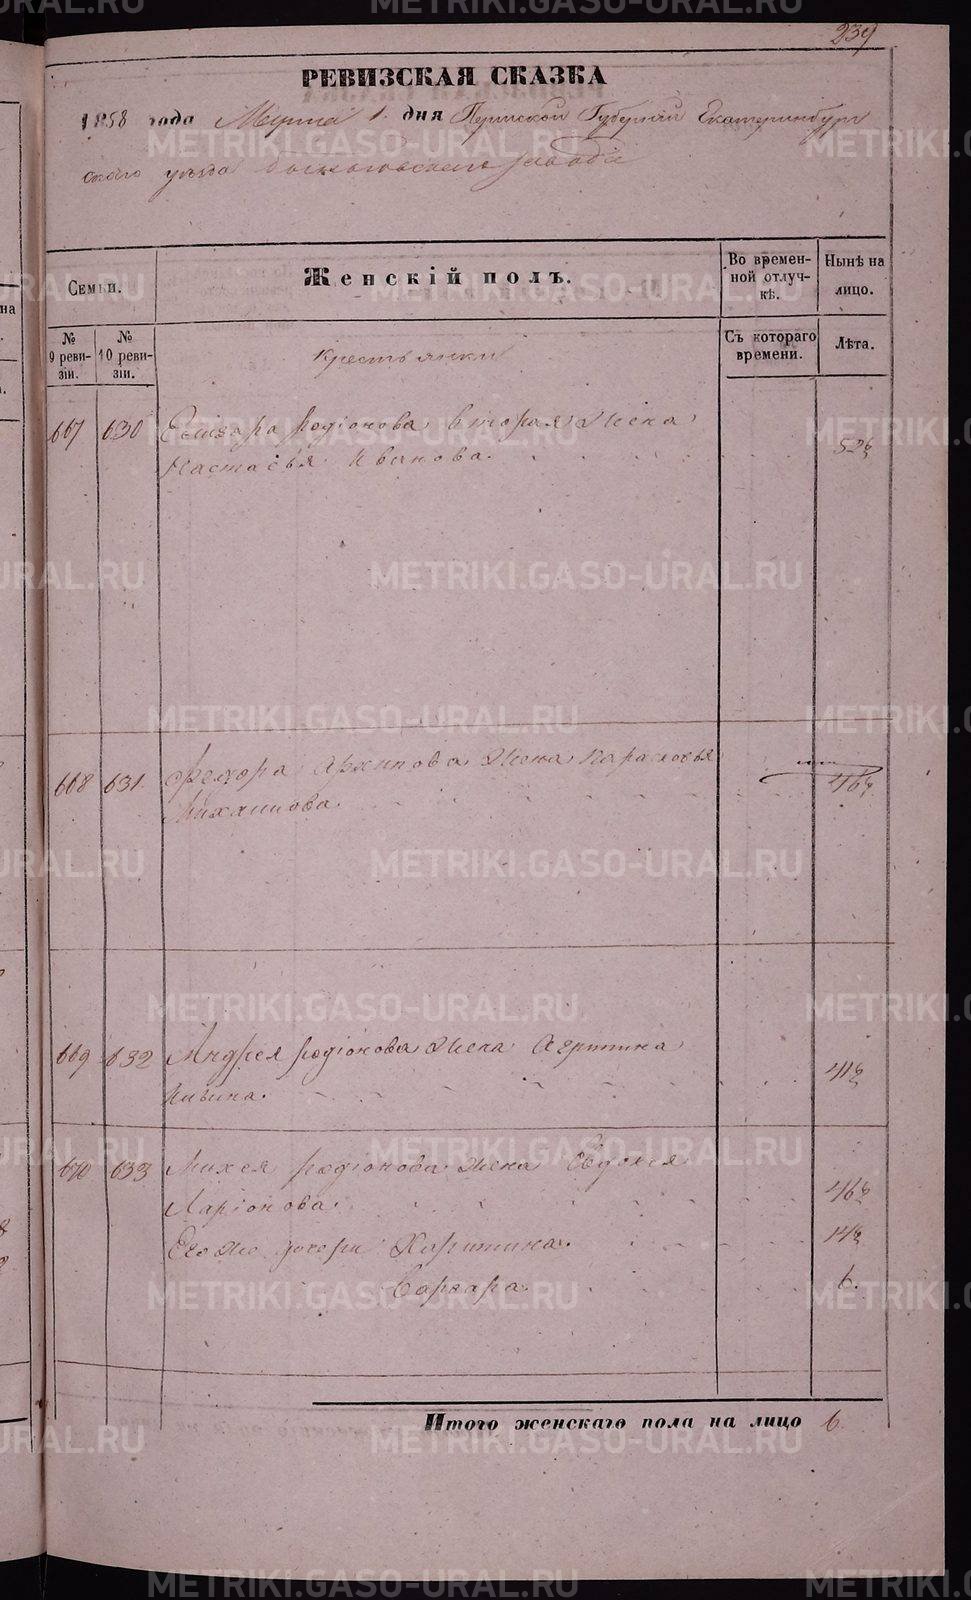 239
РЕВИЗСКАЯ СКАЗКА
1858 года Марта 1. дня Пермской Губернии Екатеринбург
скаго уезда заводе
Семьи.
Женскій полъ.
Во времен-
ной отлуч-
кѣ.
Нынѣ на
лицо.
№
9 реви-
зіи.
№
10 реви-
зіи.
Крестьянки
Съ котораго
времени.
Лѣта.
667 630 Елизара Родіонова вторая жена
Настасья Иванова. 52½
668 631. Федора Архипова жена Парасковья
Михаилова 46½
669 632 Андрея Родіонова жена Агрипина
Ильина. 41½
670 633 Михея Родіонова жена Евдокея
Ларіонова. 46½
Его же дочери Харитина. 14½
Варвара. 6.
Итого женскаго пола на лицо 6.
METRIKI.GASO-URAL.RU